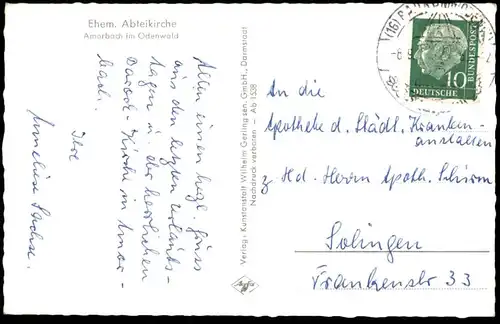 Ehem. Abteikirche
Amorbach im Odenwald
Allen einen herzl. Gruss
aus den letzten Urlaubs-
tagen u. der herrlichen
Barock-Kirche in Amor-
bach.
Ihre
Anneliese
Verlag: Kunstanstalt Wilhelm Gerling sen. GmbH., Darmstadt
Nachdruck verboten – Ab 1538
(16)
10
DEUTSCHE
BUNDESPOST
An die
Apotheke d. Städt. Kranken-
anstalten
z. Hd. Herrn Apoth. Schirm
Solingen
Frankenstr 33